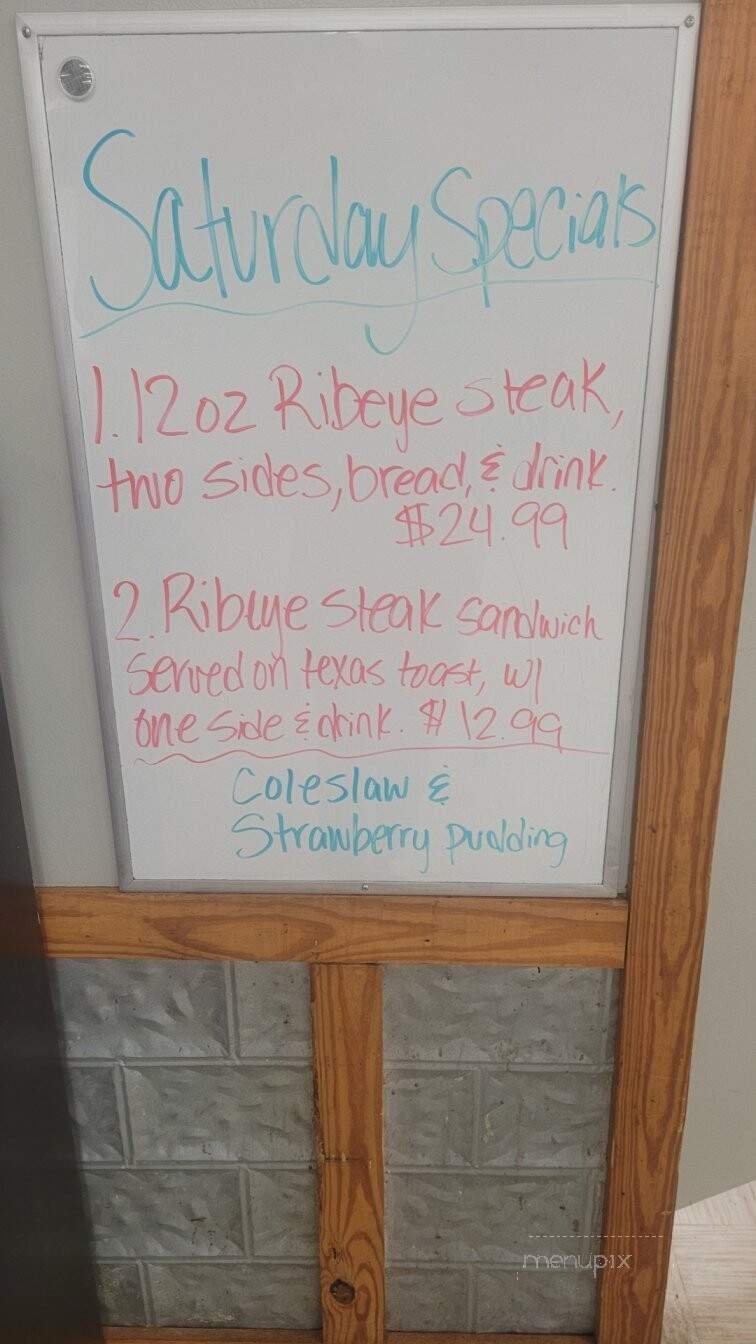 Saturday Specials
1. 12 oz Ribeye steak,
two sides, bread, & drink.
$24.99
2. Ribeye steak sandwich
served on texas toast, w/
one side & drink. $12.99
Coleslaw &
Strawberry pudding
menupix